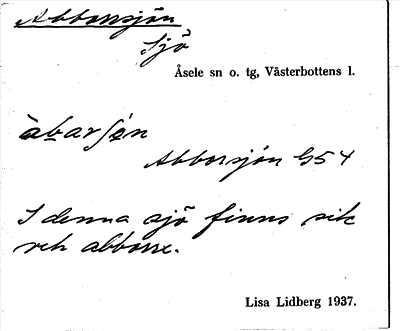 Abborrsjön
Sjö
Åsele sn o. tg, Västerbottens l.
àbarʃǿn
Abborsjön G54
I denna sjö finns sik
och abborre.
Lisa Lidberg 1937.